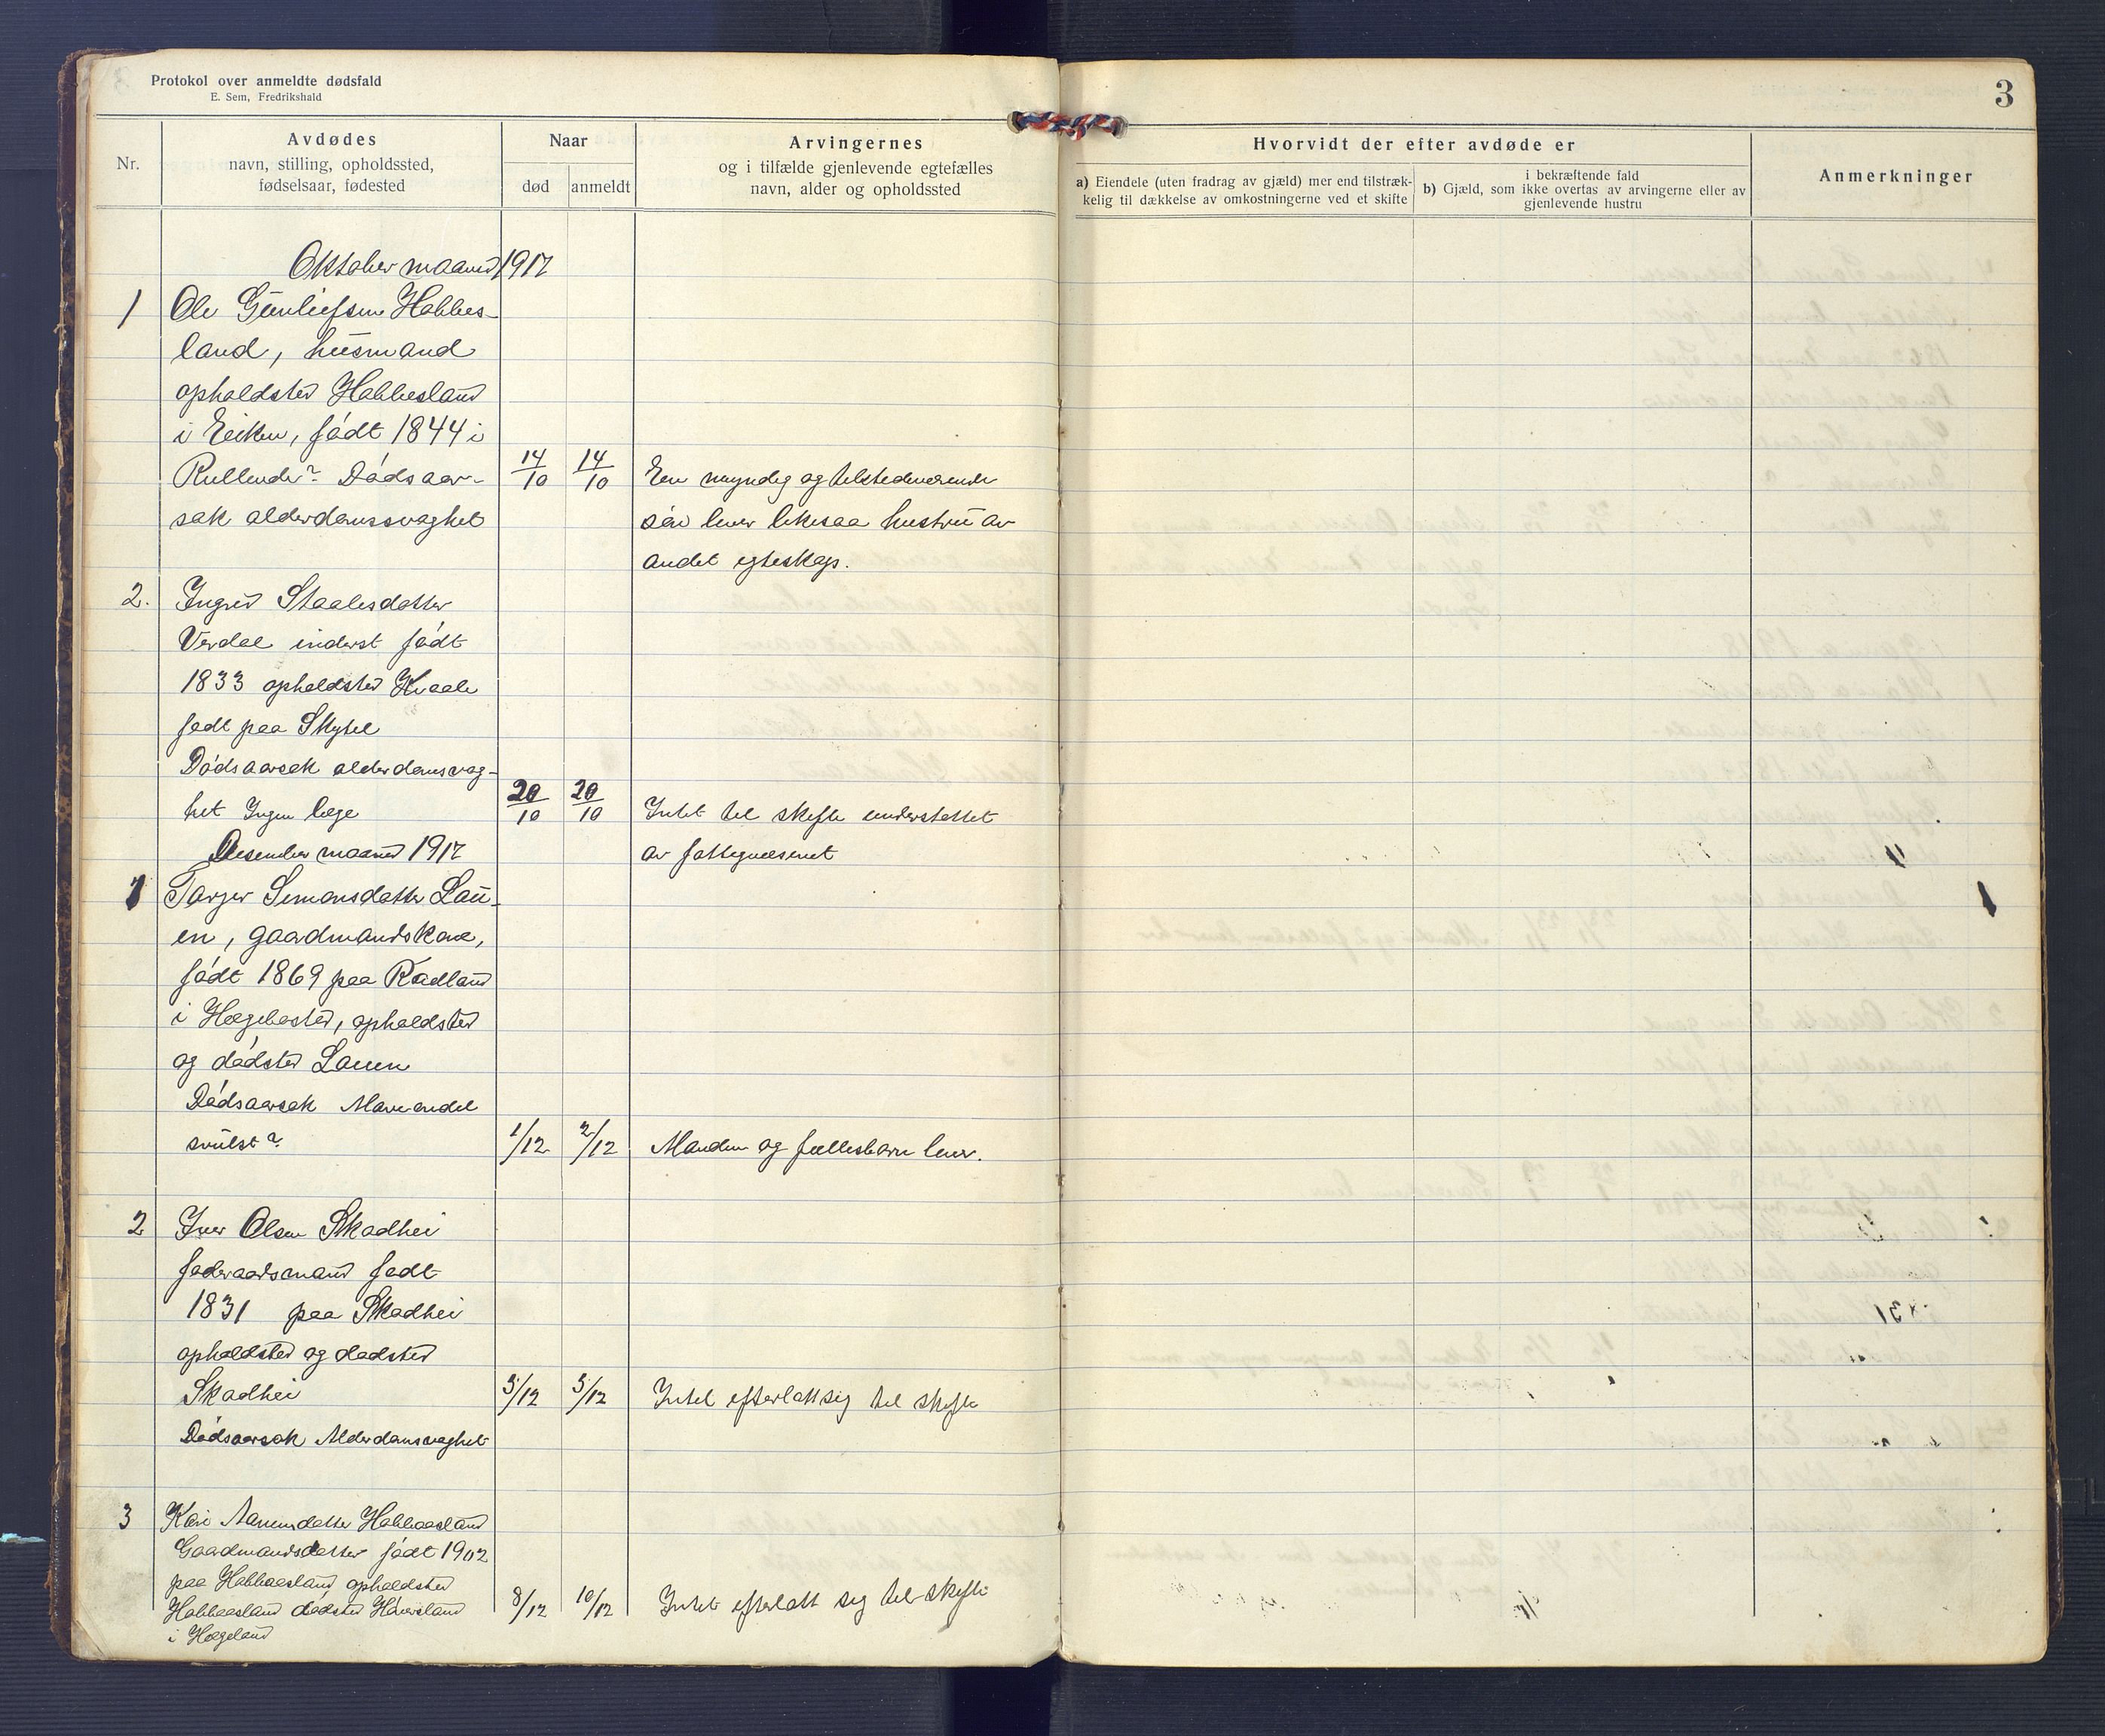 Protokol over anmeldte dødsfald
E. Sem, Fredrikshald
3
Nr.
Avdødes
navn, stilling, opholdssted,
fødselsaar, fødested
Naar
død
anmeldt
Arvingernes
og i tilfælde gjenlevende egtefælles
navn, alder og opholdssted
Hvorvidt der efter avdøde er
a) Eiendele (uten fradrag av gjæld) mer end tilstræk-
kelig til dækkelse av omkostningerne ved et skifte
i bekræftende fald
b) Gjæld, som ikke overtas av arvingerne eller av
gjenlevende hustru
Anmerkninger
Oktober maaned 1917
1 Ole Gunliefsen Habbes-
land, husmand
opholdsted Habbesland
i Eiken, født 1844 i
? Dødsaar- 14/10 14/10 En myndig og tilstedeværende
sak alderdomssvaghet søn lever likesaa hustru av
andet egteskap.
2. Ingrid Staalesdatter
Verdal inderst født
1833 opholdsted Kvaale
født paa
Dødsaarsak alderdomsvag-
het Ingen læge 20/10 20/10 Intet til skifte understøttet
Desember maaned 1917 av fattigvæsenet
1 Tarjer Simonsdatter Lau-
en, gaardmandskone,
født 1869 paa
i Hægebosted, opholdsted
og dødsted Lauen
Dødsaarsak
svulst? 1/12 2/12 Manden og fællesbarn lever.
2 Iver Olsen Skadhei
føderaadsmand født
1831 paa Skadhei
opholdsted og dødsted
Skadhei 5/12 5/12 Intet efterlatt sig til skifte
Dødsaarsak Alderdomsvaghet
3 Kari Aanensdatter Habbaesland
Gaardmandsdatter født 1902
paa Habbaesland opholdsted
Habbaesland dødsted 8/12 10/12 Intet efterlatt sig til skifte
i Hægeland